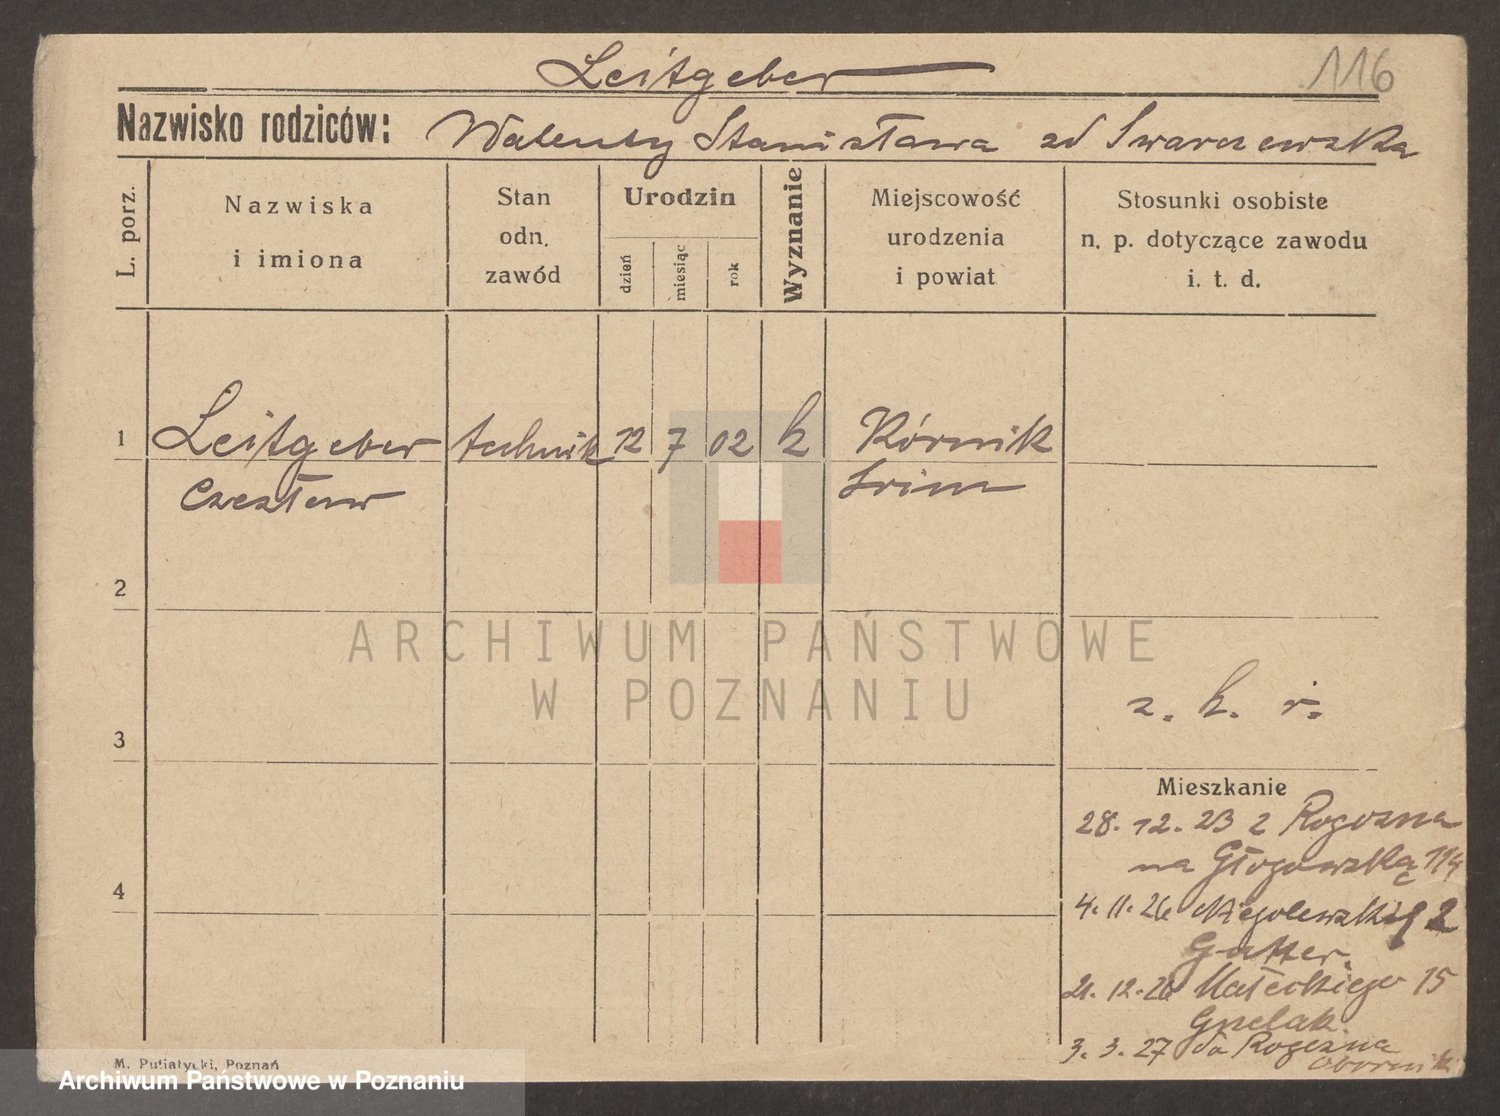 Leitgeber
116
Nazwisko rodziców: Walenty Stanisława zd Swarczewska
L. porz.
Nazwiska
i imiona
Stan
odn.
zawód
Urodzin
dzień
miesiąc
rok
Wyznanie
Miejscowość
urodzenia
i powiat
Stosunki osobiste
n. p. dotyczące zawodu
i. t. d.
1 Leitgeber technik 12 7 02 k Kórnik
Czesław Srim
2
ARCHIWUM PAŃSTWOWE
W POZNANIU
z. k. r.
3
Mieszkanie
28. 12. 23 z Rogozna
na Głogowską 114
4
4. 11. 26 2
Gatter.
21. 12. 26 Małeckiego 15
3. 3. 27 do Rogozna
Obornik
M. Putiatycki, Poznań
Archiwum Państwowe w Poznaniu